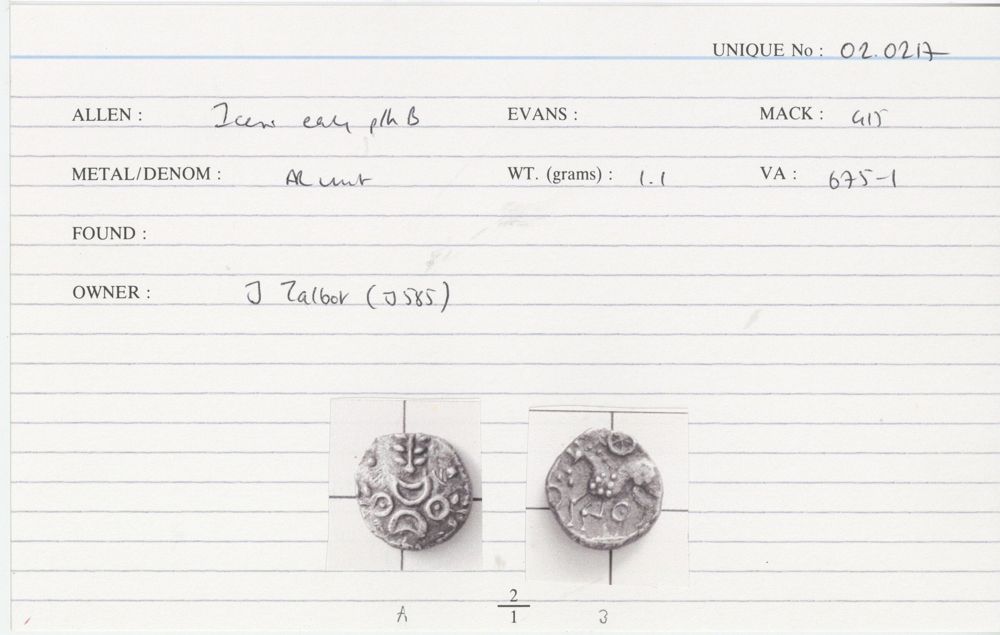 UNIQUE No : 02.0217
ALLEN : Iceni early pth B EVANS : MACK : 415
METAL/DENOM : AR unit WT. (grams) : 1.1 VA : 675-1
FOUND :
OWNER : J Talbot (J585)
A 2/1 3